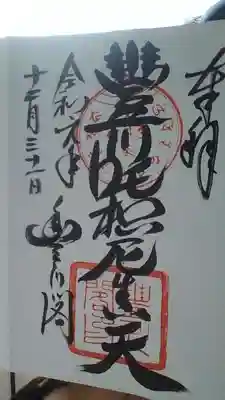 奉拝
豊川吒枳尼真天
令和元年
十二月三十一日
豊川閣